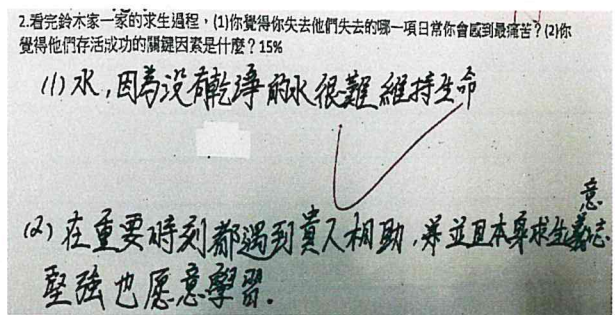 2.看完鈴木家一家的求生過程，(1)你覺得你失去他們失去的哪一項日常你會感到最痛苦？(2)你
覺得他們存活成功的關鍵因素是什麼？15%
(1)水，因為沒有乾淨的水很難維持生命
(2)在重要時刻都遇到貴人相助，並且本身求生意志
堅強也愿意學習。